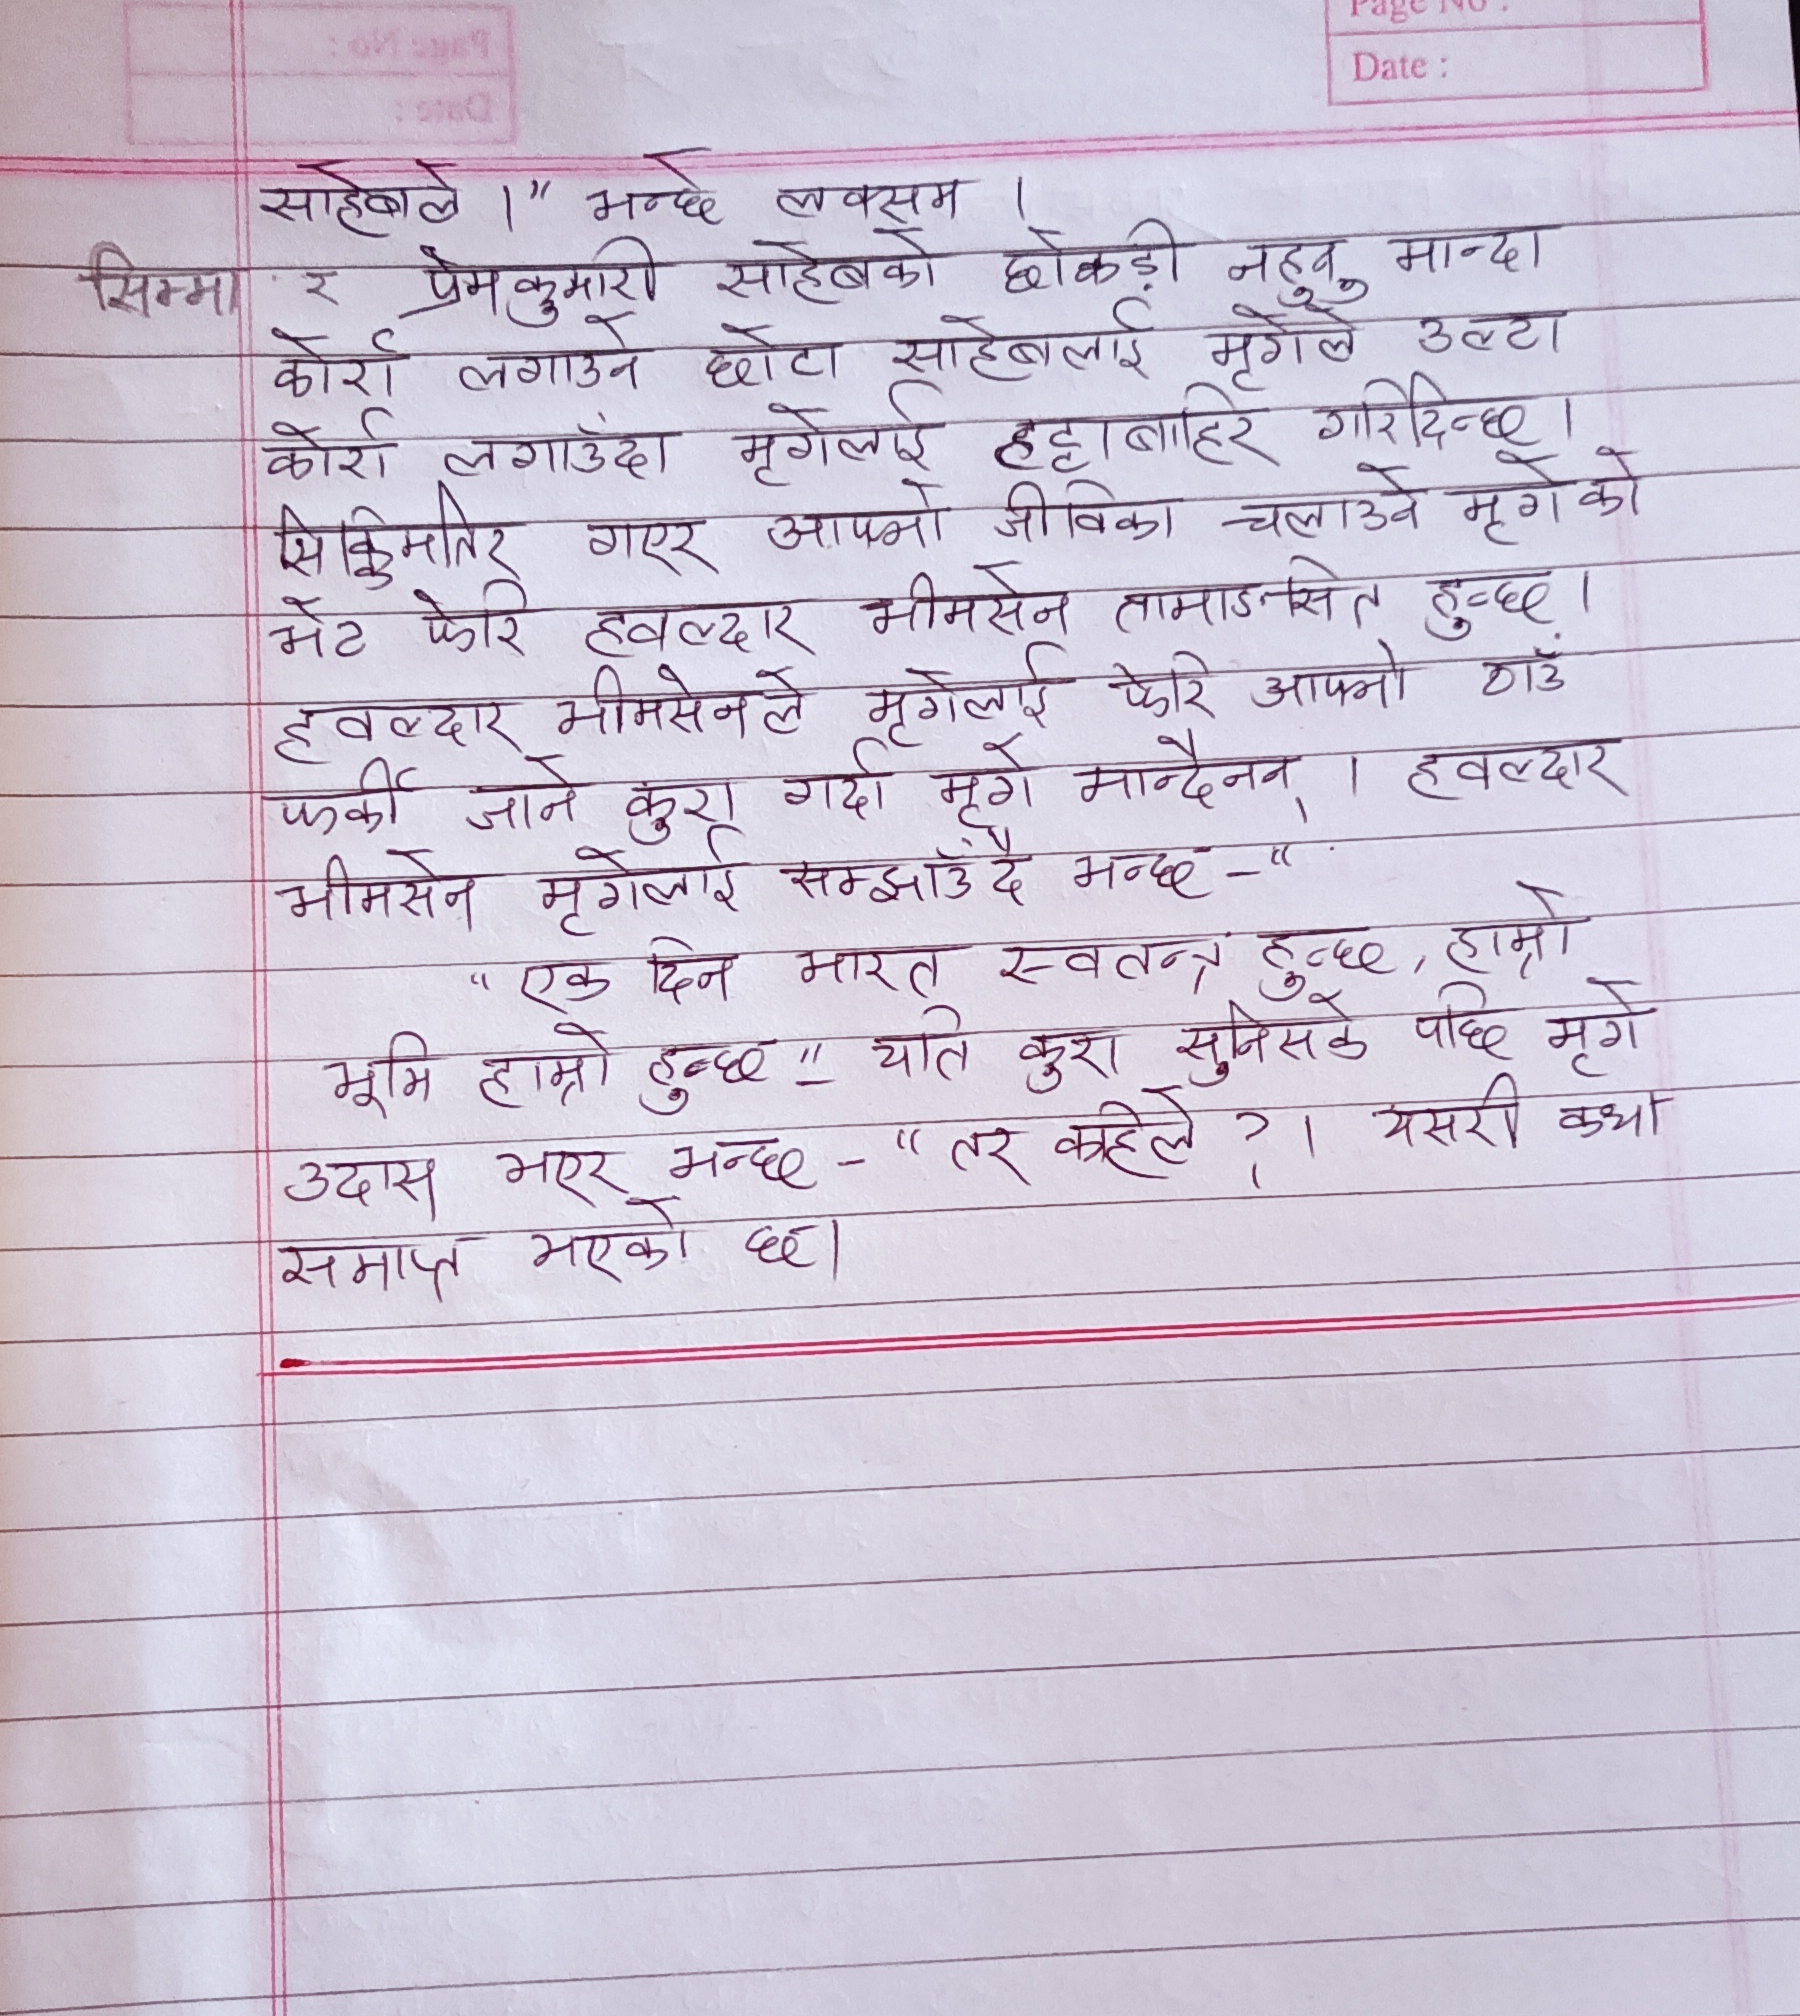 Page No :
Date :
साहेबले ।" भन्छे लक्सम ।
सिम्मा र प्रेमकुमारी साहेबको छोकड़ी नहुनु मान्दा
कोर्रा लगाउने छोटा साहेबलाई मृगेले उल्टा
कोर्रा लगाउँदा मृगेलाई हट्टाबाहिर गरिदिन्छ।
सिक्किमतिर गएर आफ्नो जीविका चलाउने मृगेको
भेट फेरि हवल्दार भीमसेन तामाङसित हुन्छ।
हवल्दार भीमसेनले मृगेलाई फेरि आफ्नो ठाउँ
फर्की जाने कुरा गर्दा मृगे मान्दैनन् । हवल्दार
भीमसेन मृगेलाई सम्झाउँदै भन्छ -"
"एक दिन भारत स्वतन्त्र हुन्छ, हाम्रो
भूमि हाम्रो हुन्छ" यति कुरा सुनिसके पछि मृगे
उदास भएर भन्छ - "तर कहिले ?। यसरी कथा
समाप्त भएको छ।